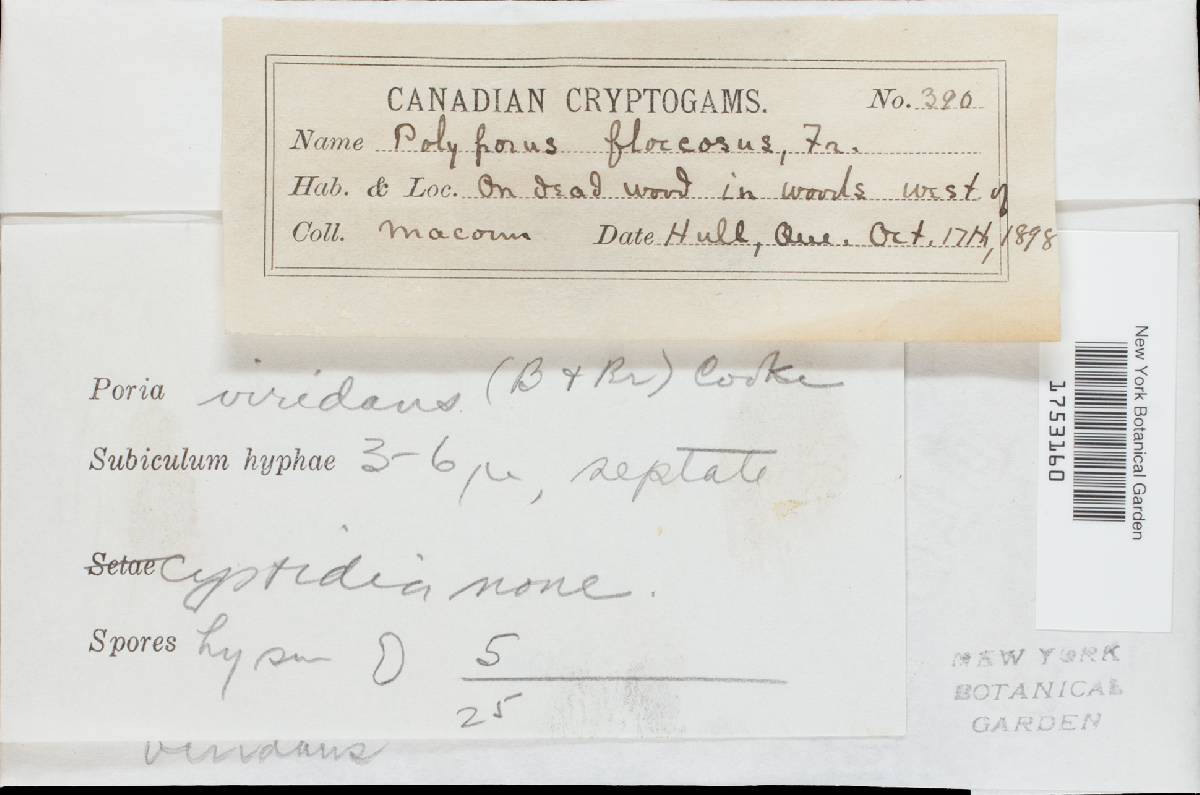 CANADIAN CRYPTOGAMS. No. 390
Name Polyporus floccosus, Fr.
Hab. & Loc. On dead wood in woods west of
Coll. Macoun Date Hull, Que. Oct. 17th, 1898
Poria viridans (B & Br) Cooke
Subiculum hyphae 3-6 µ, septate
Setae Cystidia none.
Spores 5
25
viridans
New York Botanical Garden
1753160
NEW YORK
BOTANICAL
GARDEN